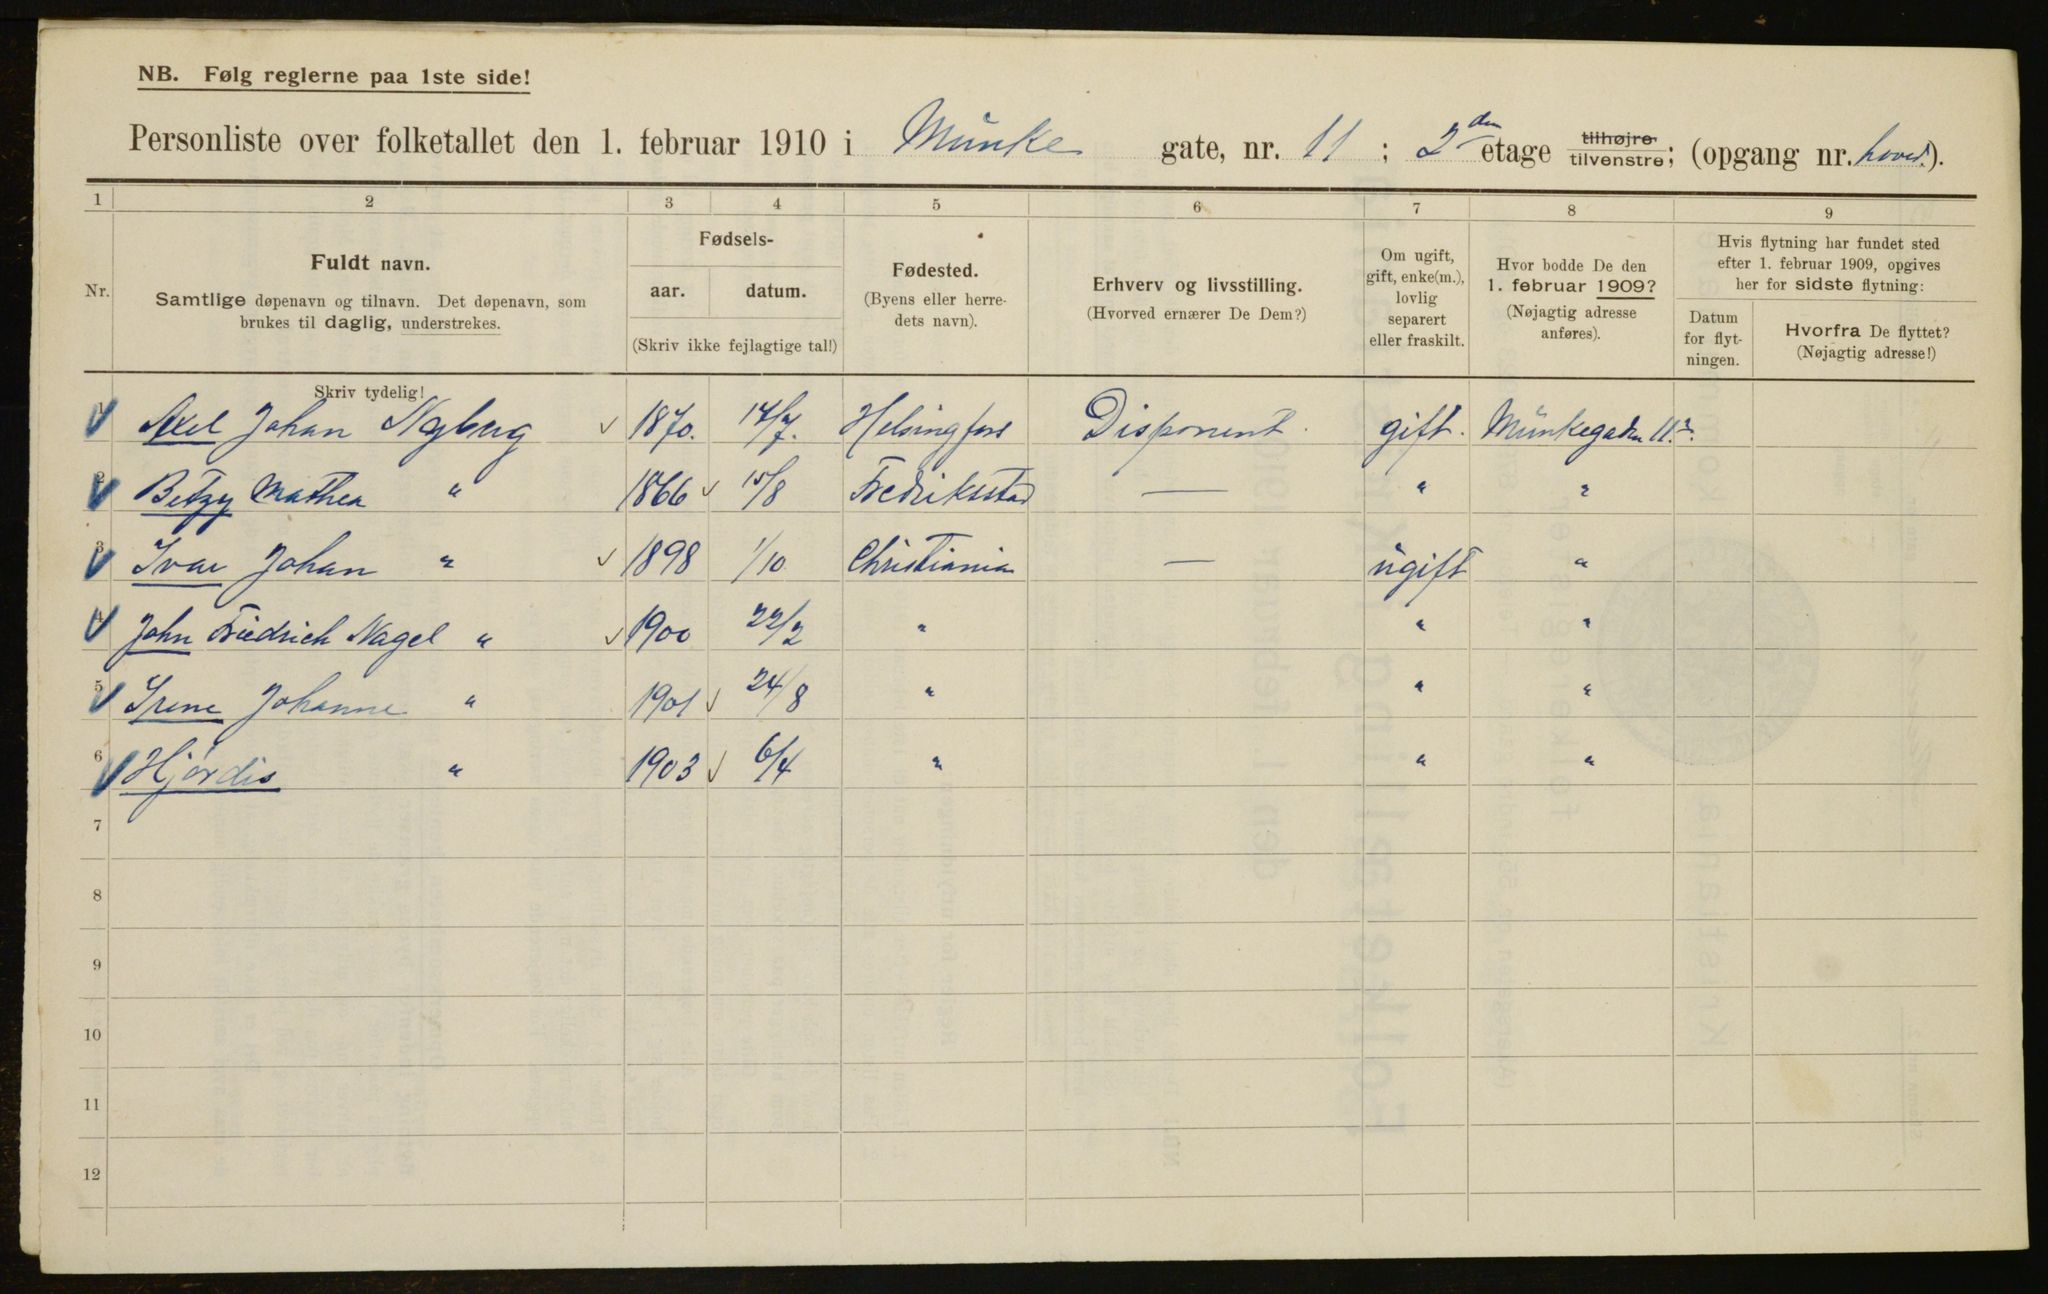 NB. Følg reglerne paa 1ste side!
Personliste over folketallet den 1. februar 1910 i Munke gate, nr. 11; 2den etage tilhøjre tilvenstre; (opgang nr. hoved.).
1 2 3 4 5 6 7 8 9
Nr.
Fuldt navn.
Samtlige døpenavn og tilnavn. Det døpenavn, som
brukes til daglig, understrekes.
Skriv tydelig!
Fødsels-
aar. datum.
(Skriv ikke fejlagtige tal!)
Fødested.
(Byens eller herre-
dets navn).
Erhverv og livsstilling.
(Hvorved ernærer De Dem?)
Om ugift,
gift, enke(m.),
lovlig
separert
eller fraskilt.
Hvor bodde De den
1. februar 1909?
(Nøjagtig adresse
anføres).
Hvis flytning har fundet sted
efter 1. februar 1909, opgives
her for sidste flytning:
Datum
for flyt-
ningen.
Hvorfra De flyttet?
(Nøjagtig adresse!)
1 Axel Johan Nyberg 1870. 14/7. Helsingfors Disponent. gift. Munkegaden 11.2.
2 Betzy Mathea " 1866 15/8 Fredriksstad — " "
3 Ivar Johan " 1898 1/10 Christiania — ugift "
4 John Friedrich Nagel " 1900 22/2 " " "
5 Irene Johanne " 1901 24/8 " " "
6 Hjørdis " 1903 6/4 " " "
7
8
9
10
11
12